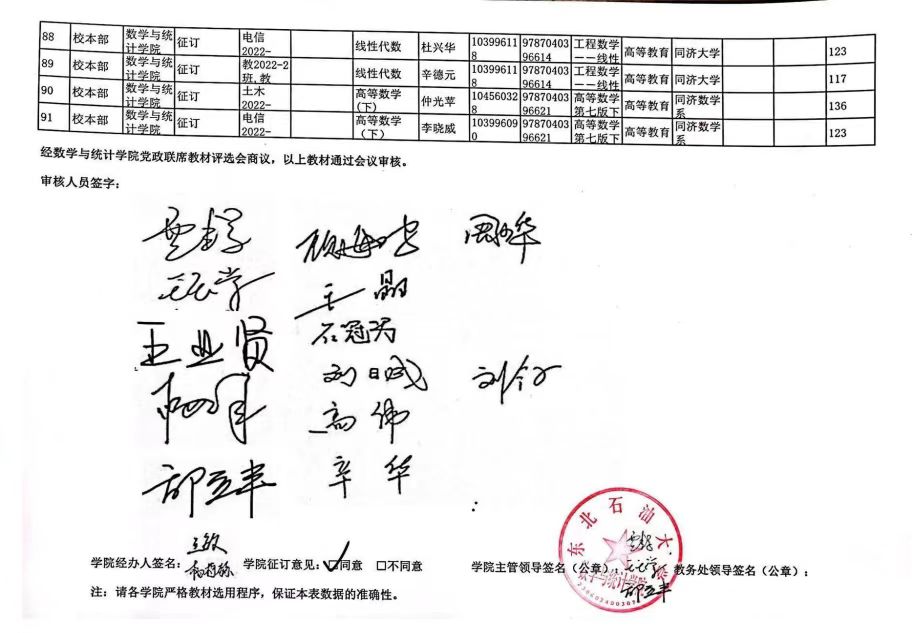 88 校本部 数学与统计学院 征订 电信2022- 线性代数 杜兴华 103996118 9787040396614 工程数学——线性 高等教育 同济大学 123
89 校本部 数学与统计学院 征订 教2022-2班,教 线性代数 辛德元 103996118 9787040396614 工程数学——线性 高等教育 同济大学 117
90 校本部 数学与统计学院 征订 土木2022- 高等数学(下) 仲光苹 104560328 9787040396621 高等数学第七版下 高等教育 同济数学系 136
91 校本部 数学与统计学院 征订 电信2022- 高等数学(下) 李晓威 103996090 9787040396621 高等数学第七版下 高等教育 同济数学系 123
经数学与统计学院党政联席教材评选会商议，以上教材通过会议审核。
审核人员签字：
王晶
王业贤 石冠男
刘日成
高伟
辛华
东北石油大
王敏
学院经办人签名： 学院征订意见：☑同意 □不同意 学院主管领导签名（公章）： 教务处领导签名（公章）：
数学与统计学院
注：请各学院严格教材选用程序，保证本表数据的准确性。